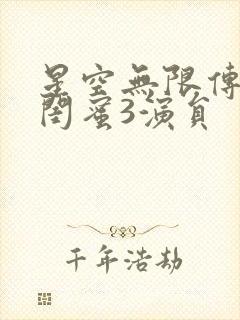 星空無限傳
閏蜜3演員
千年浩劫